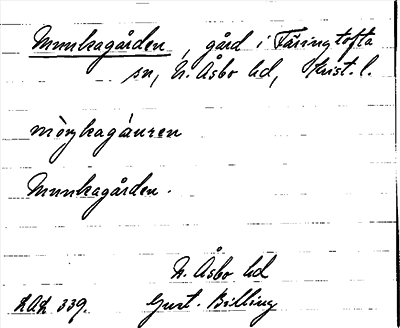 Munkagården, gård i Färingtofta
sn, N. Åsbo hd, Krist. l.
mòŋkagáuren
Munkagården.
N. Åsbo hd
339. Gust. Billing